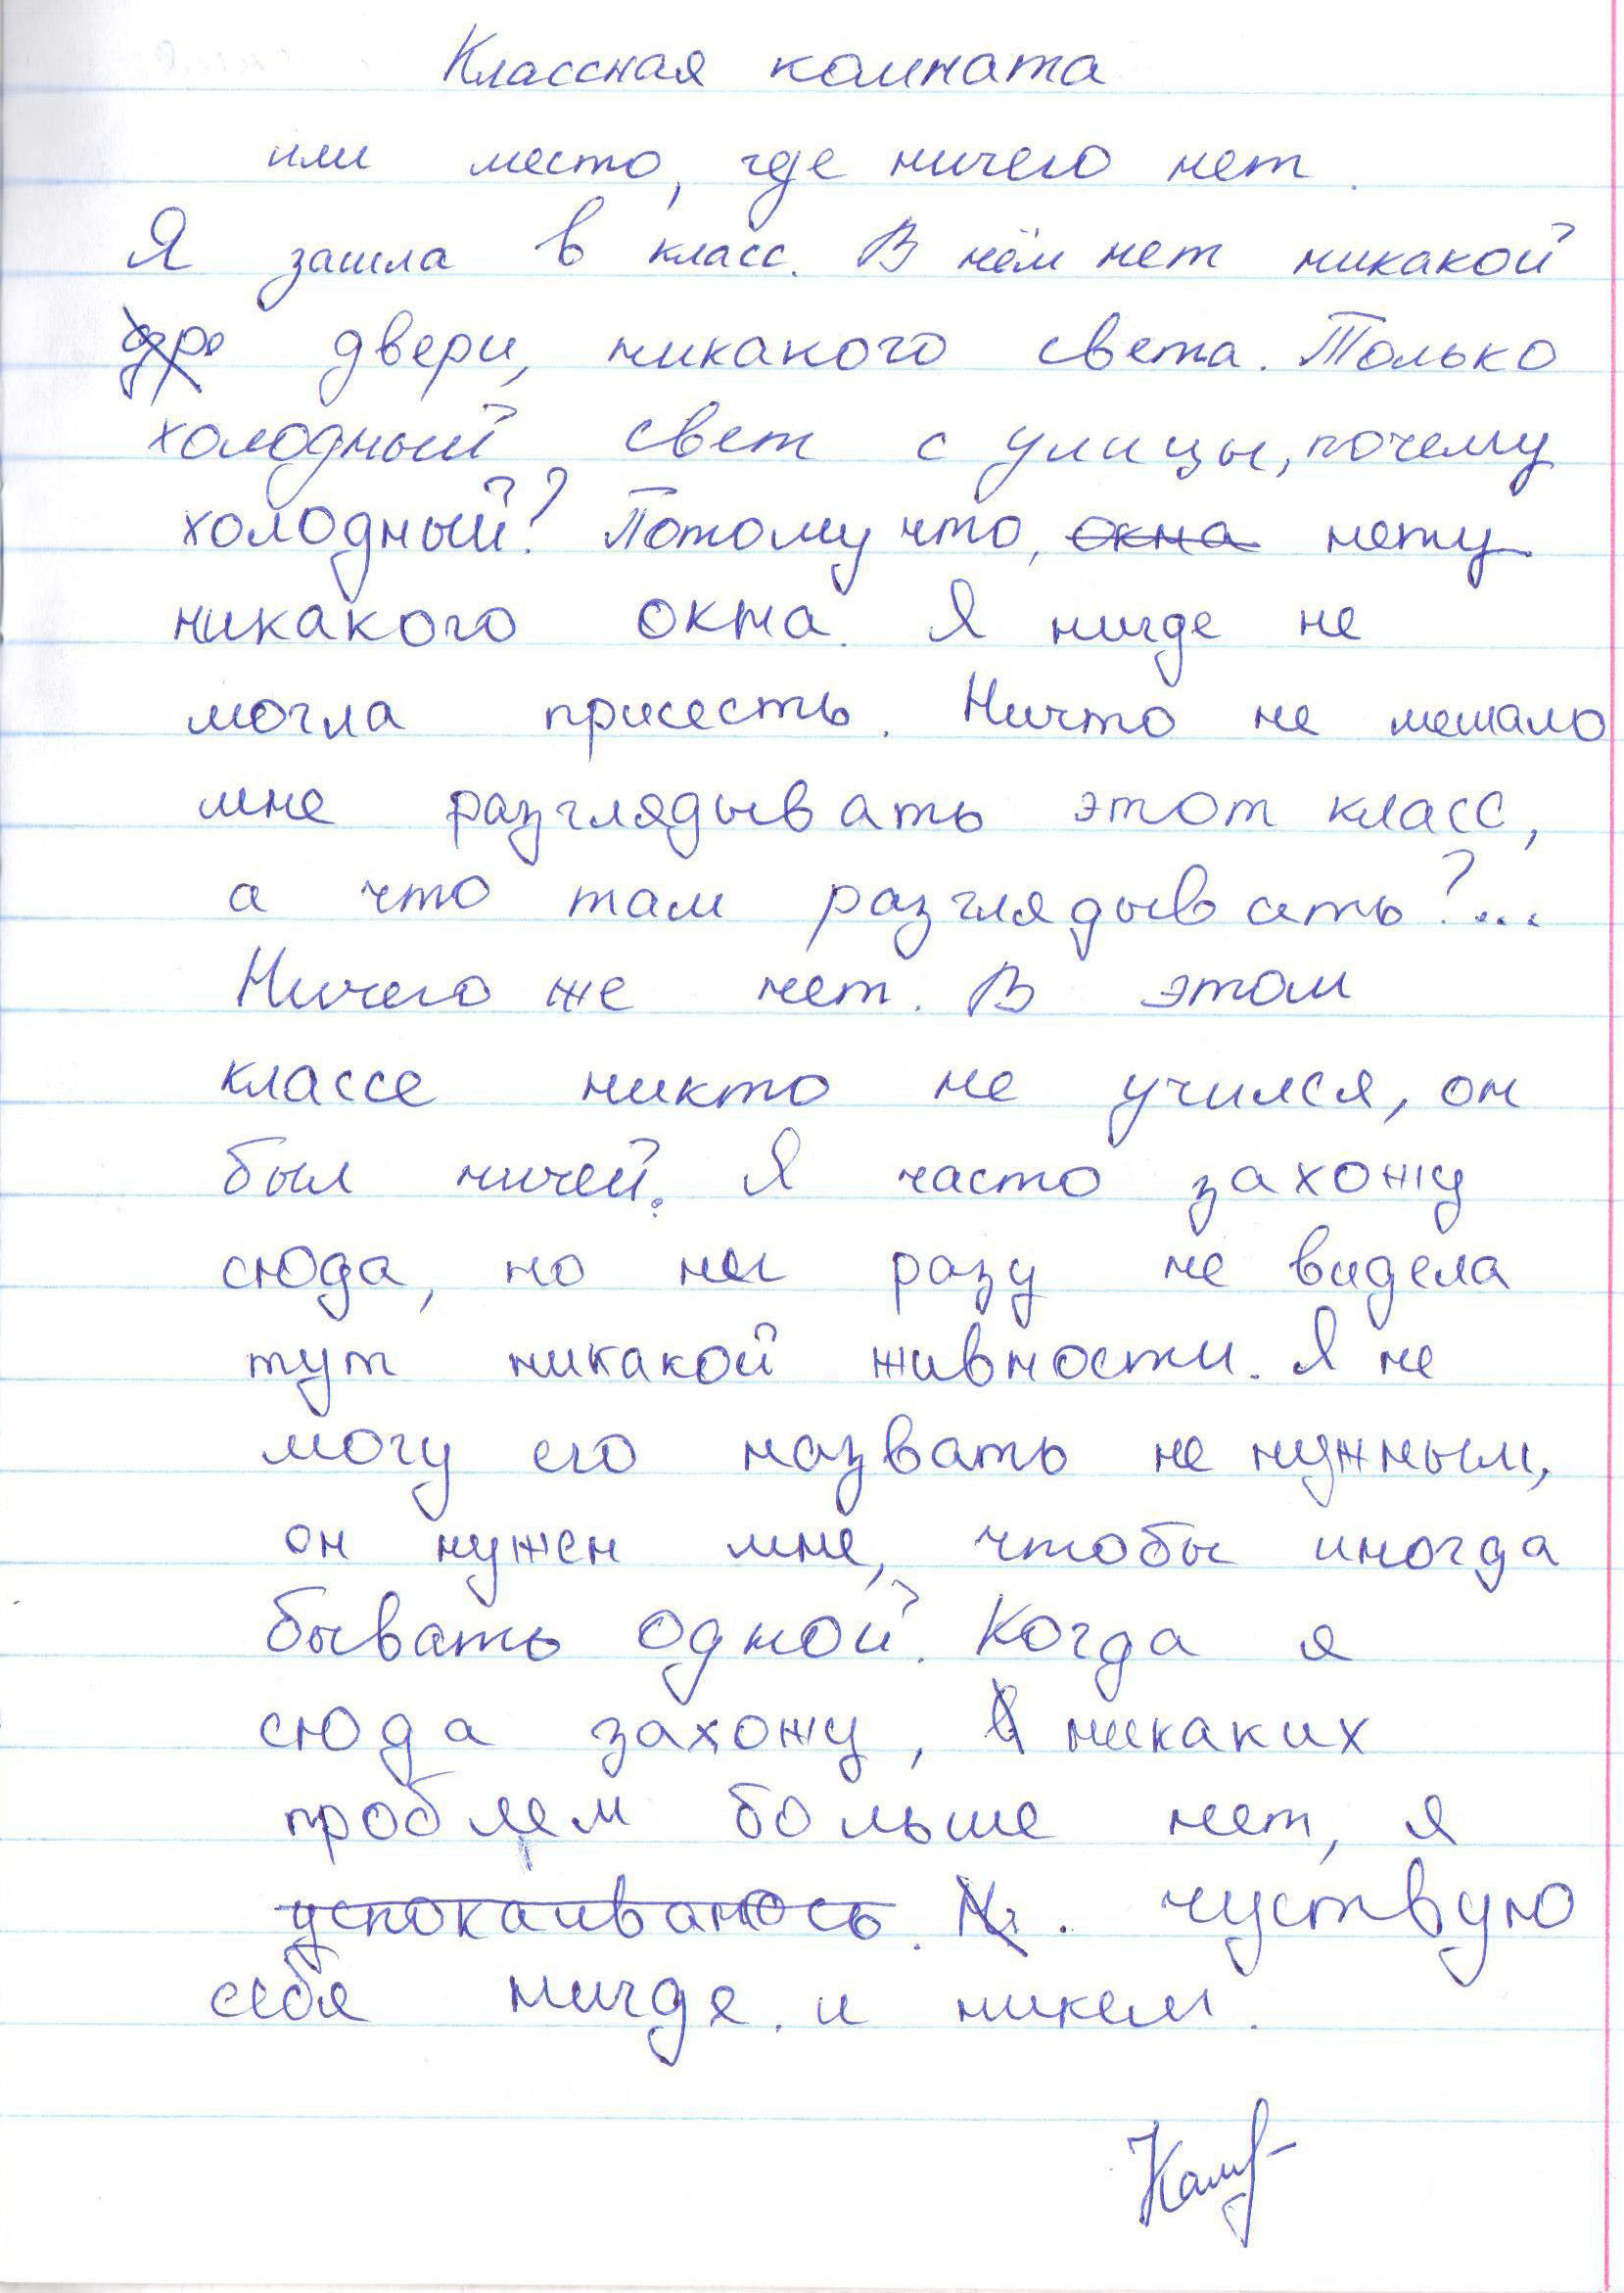 Классная комната
или место, где ничего нет.
Я зашла в класс. В нём нет никакой
двери, никакого света. Только
холодный свет с улицы, почему
холодный? Потому что, окна нету
никакого окна. Я нигде не
могла присесть. Ничто не мешало
мне разглядывать этот класс,
а что там разглядывать?...
Ничего же нет. В этом
классе никто не учился, он
был ничей. Я часто захожу
сюда, но ни разу не видела
тут никакой живности. Я не
могу его назвать не нужным,
он нужен мне, чтобы иногда
бывать одной. Когда я
сюда захожу, никаких
проблем больше нет, я
успокаиваюсь. чуствую
себя нигде. и никем.